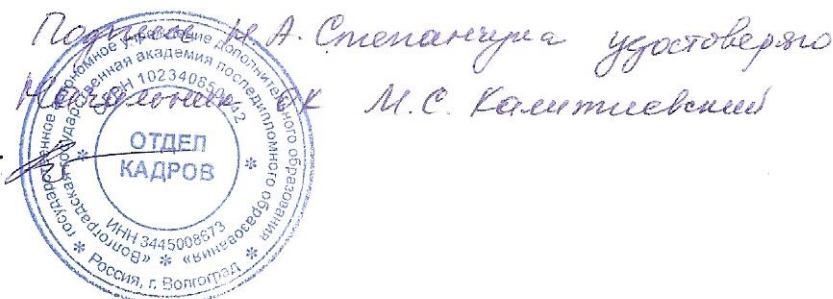 Подпись Н.А. Степанчука удостоверяю
Начальник ОК М.С. Калитиевский
государственное автономное учреждение дополнительного образования
«Волгоградская государственная академия последипломного образования»
ОГРН
ИНН 3445008673
Россия, г. Волгоград
ОТДЕЛ
КАДРОВ